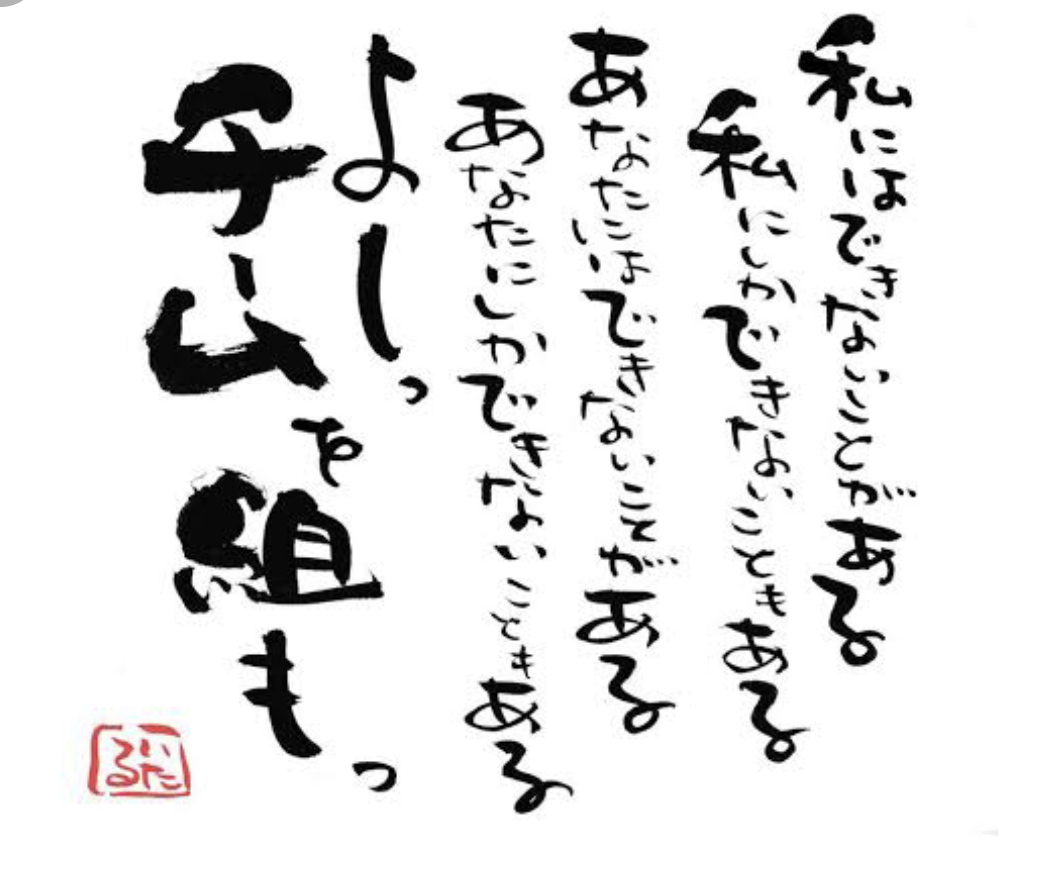 私にはできないことがある
私にしかできないこともある
あなたにはできないことがある
あなたにしかできないこともある
よしっ
チームを組もっ
いたる